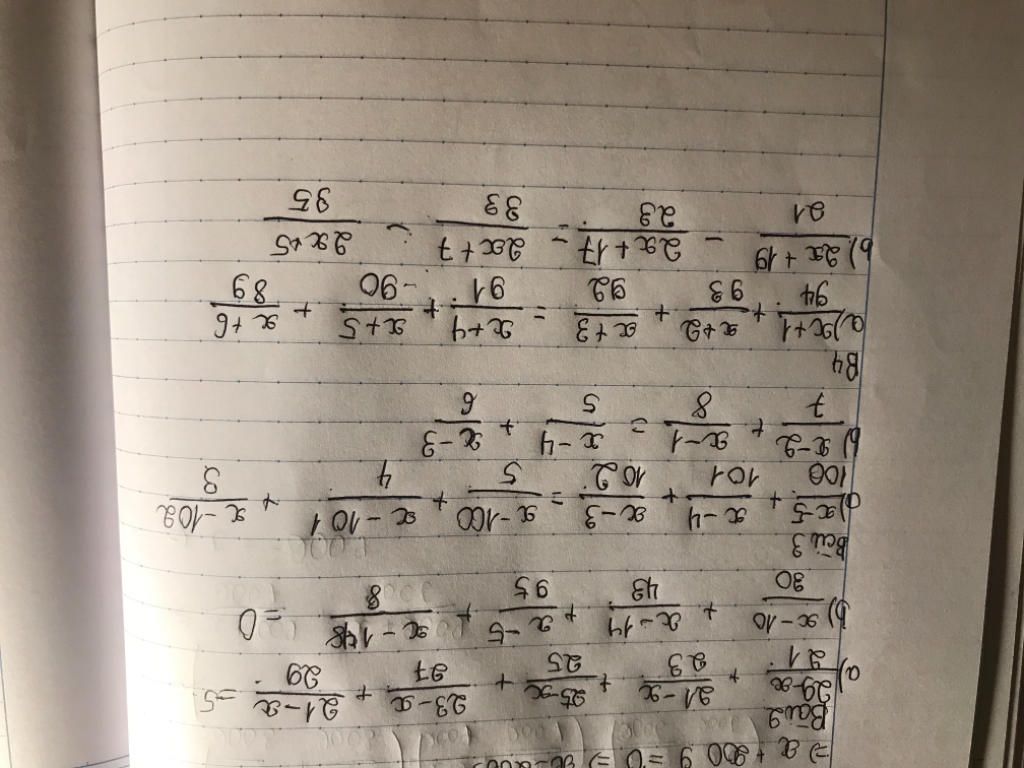 => x + 2009 = 0 =>
Bài 2
a) (29-x)/21 + (21-x)/23 + (25-x)/25 + (23-x)/27 + (21-x)/29 = -5
b) (x-10)/30 + (x-14)/43 + (x-5)/95 + (x-148)/8 = 0
Bài 3
a) (x-5)/100 + (x-4)/101 + (x-3)/102 = (x-100)/5 + (x-101)/4 + (x-102)/3
b) (x-2)/7 + (x-1)/8 = (x-4)/5 + (x-3)/6
B4
a) (x+1)/94 + (x+2)/93 + (x+3)/92 = (x+4)/91 + (x+5)/90 + (x+6)/89
b) (2x+19)/21 - (2x+17)/23 = (2x+7)/33 - (2x+5)/35